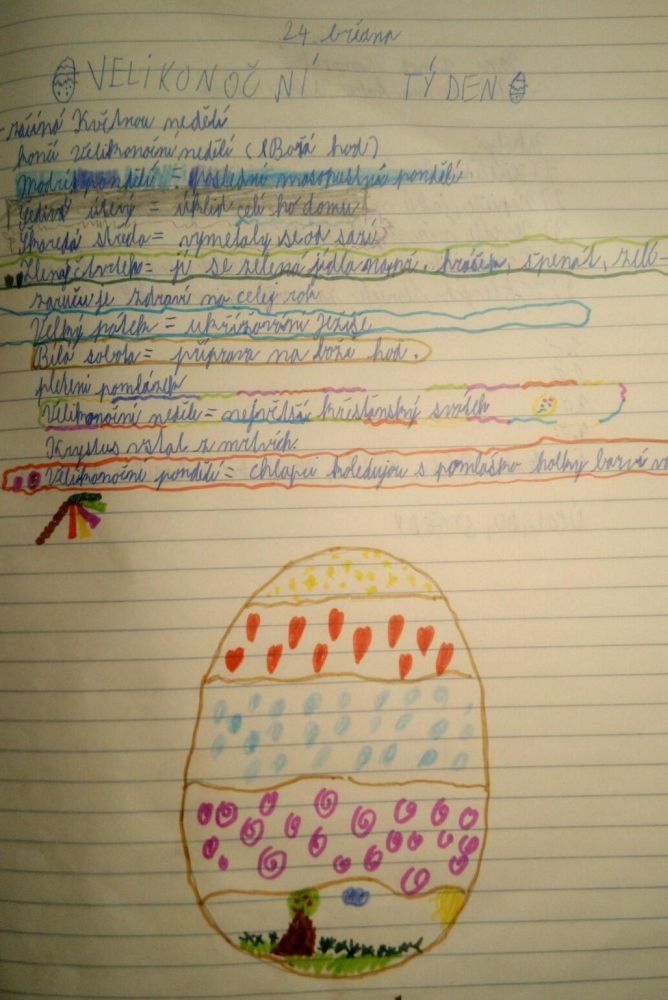 24. března
VELIKONOČNÍ TÝDEN
- začíná Květnou nedělí
končí Velikonoční nedělí (Boží hod)
Modré pondělí = poslední masopustní pondělí
úterý = úklid celího domu
středa = vymetaly se od sazí
Zelený čtvrtek = jí se zelená jídla např. hrášek, špenát, zelí -
zaručuje zdraví na celej rok
Velký pátek = ukřižování Ježíše
Bílá sobota = příprava na boží hod.
pletení pomlázek
Velikonoční neděle = největší křesťanský svátek
Krystus vstal z mrtvích.
Velikonoční pondělí = chlapci koledujou s pomlaskou holky barví